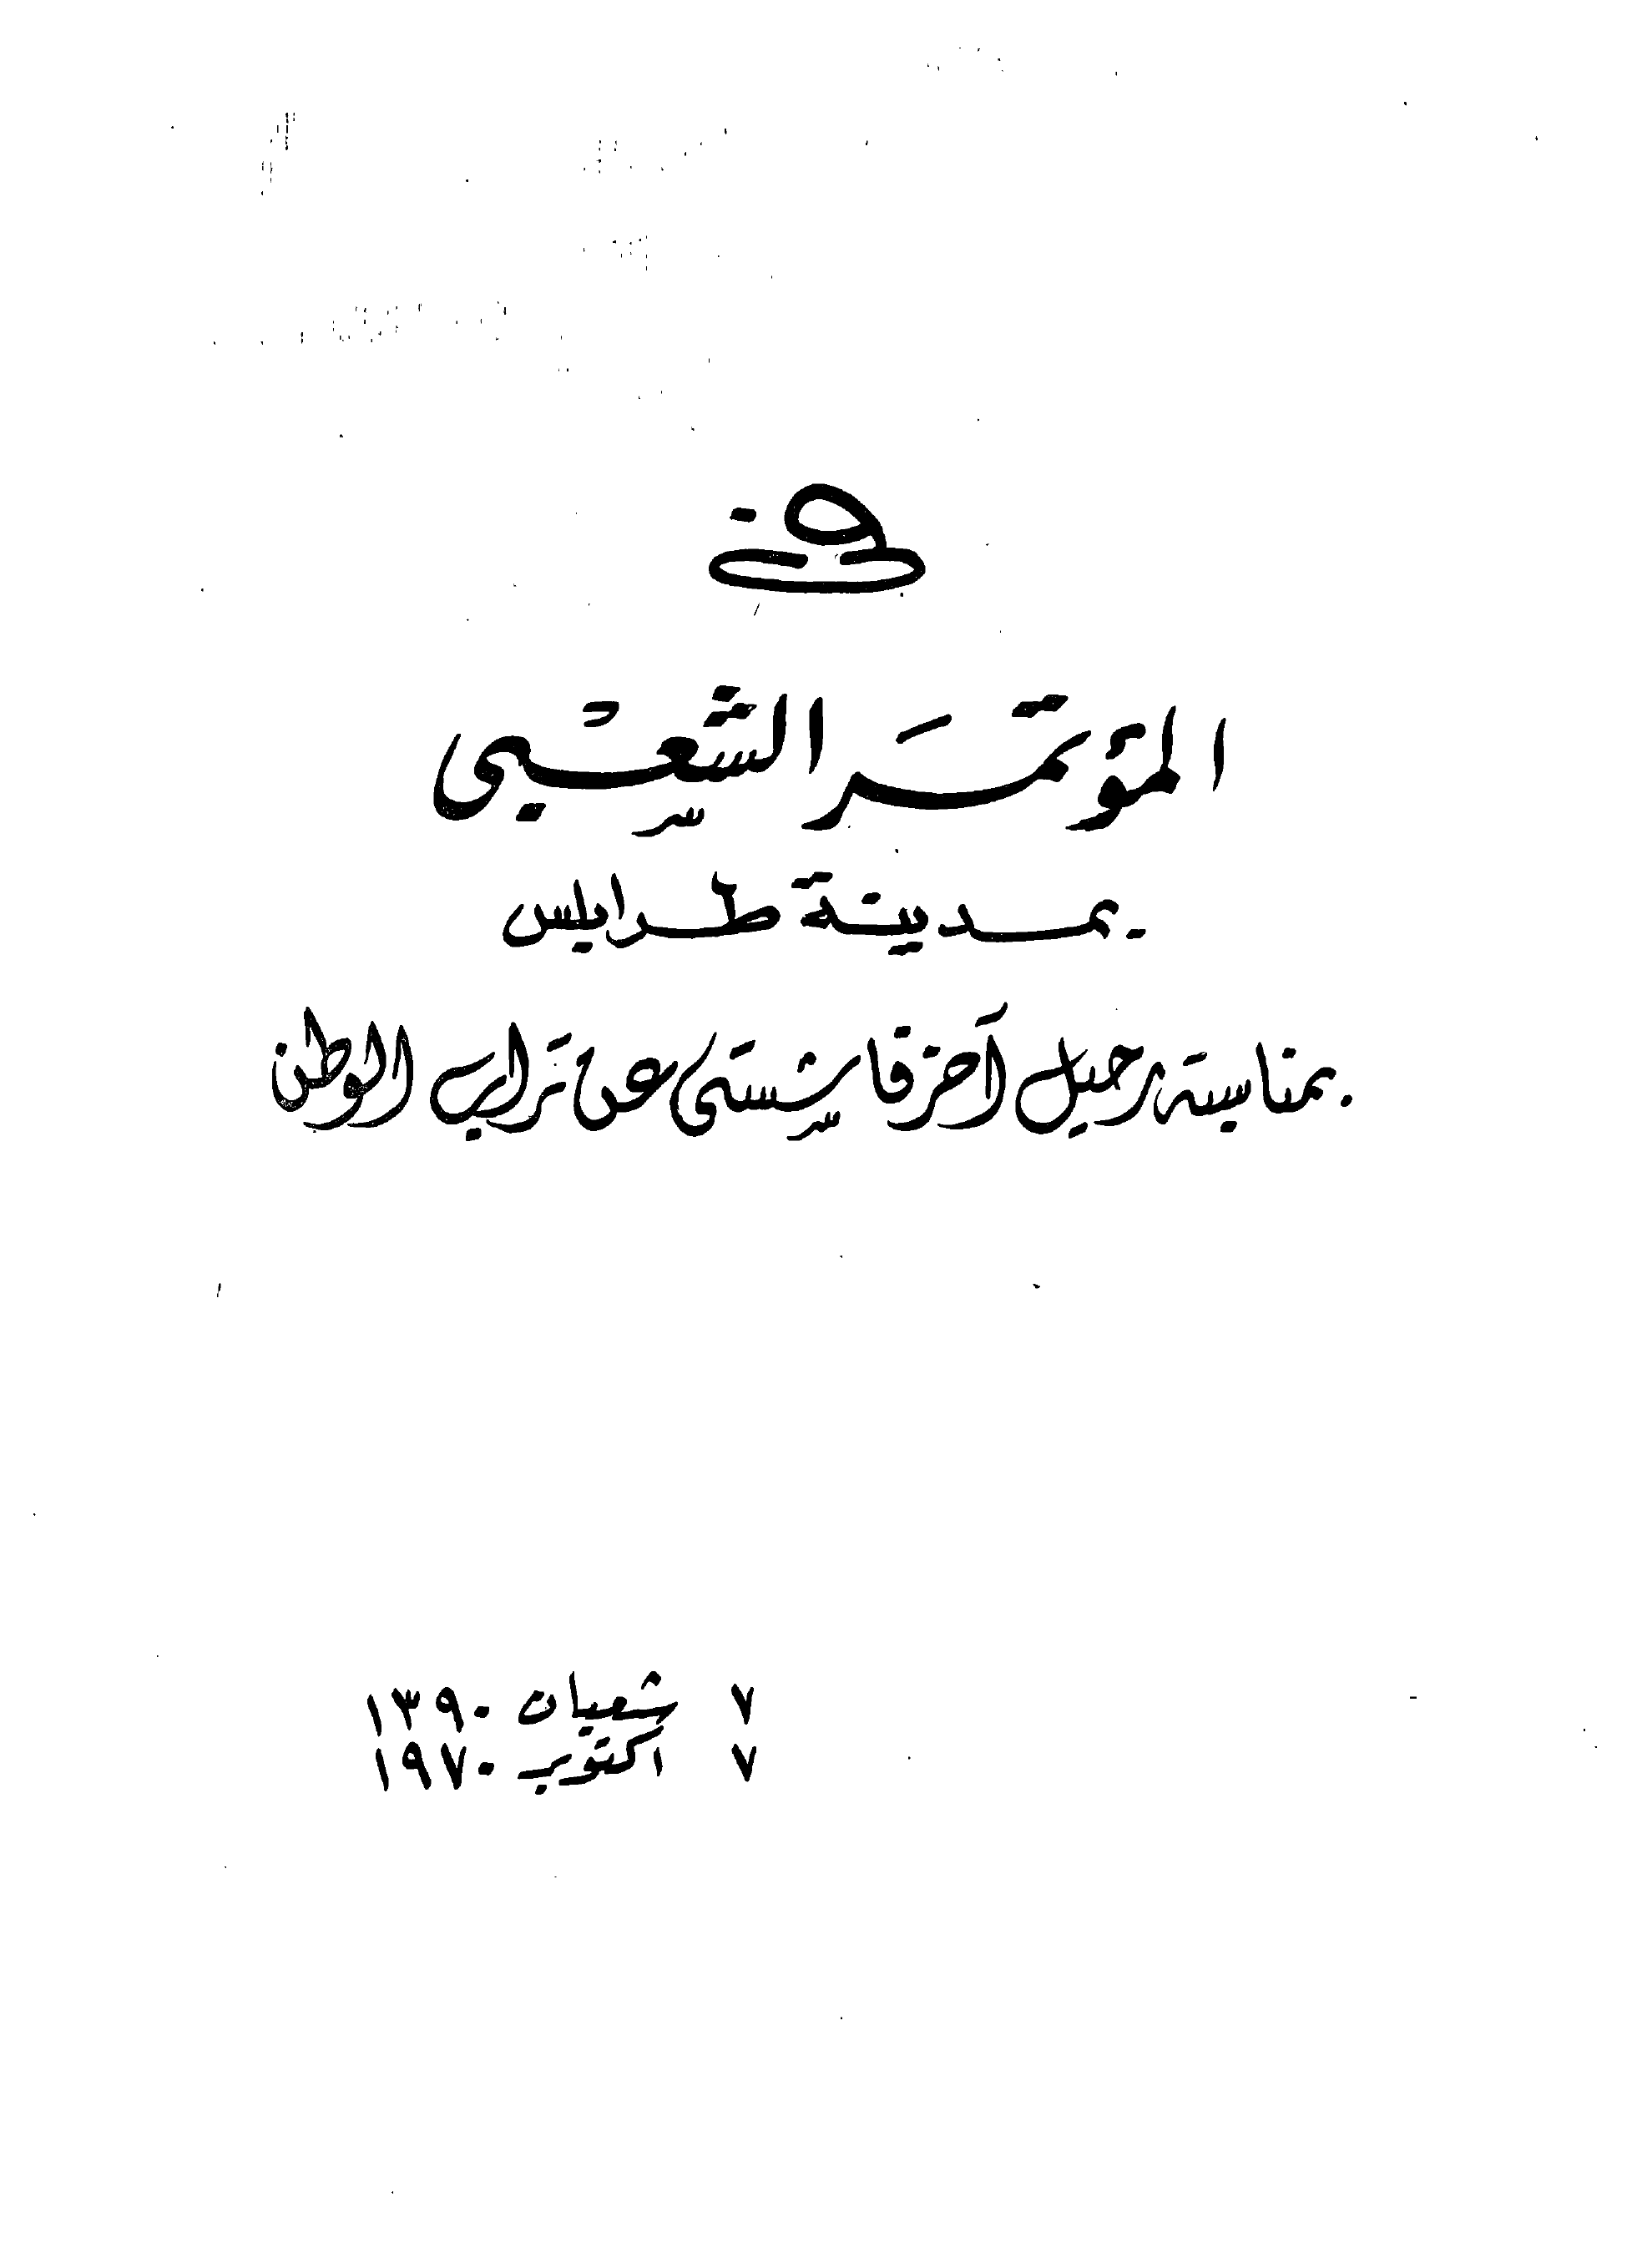 في
المؤتمر الشعبي
بمدينة طرابلس
بمناسبة رحيل آخر فاشستى عن تراب الوطن
٧ شعبان ١٣٩٠
٧ اكتوبر ١٩٧٠